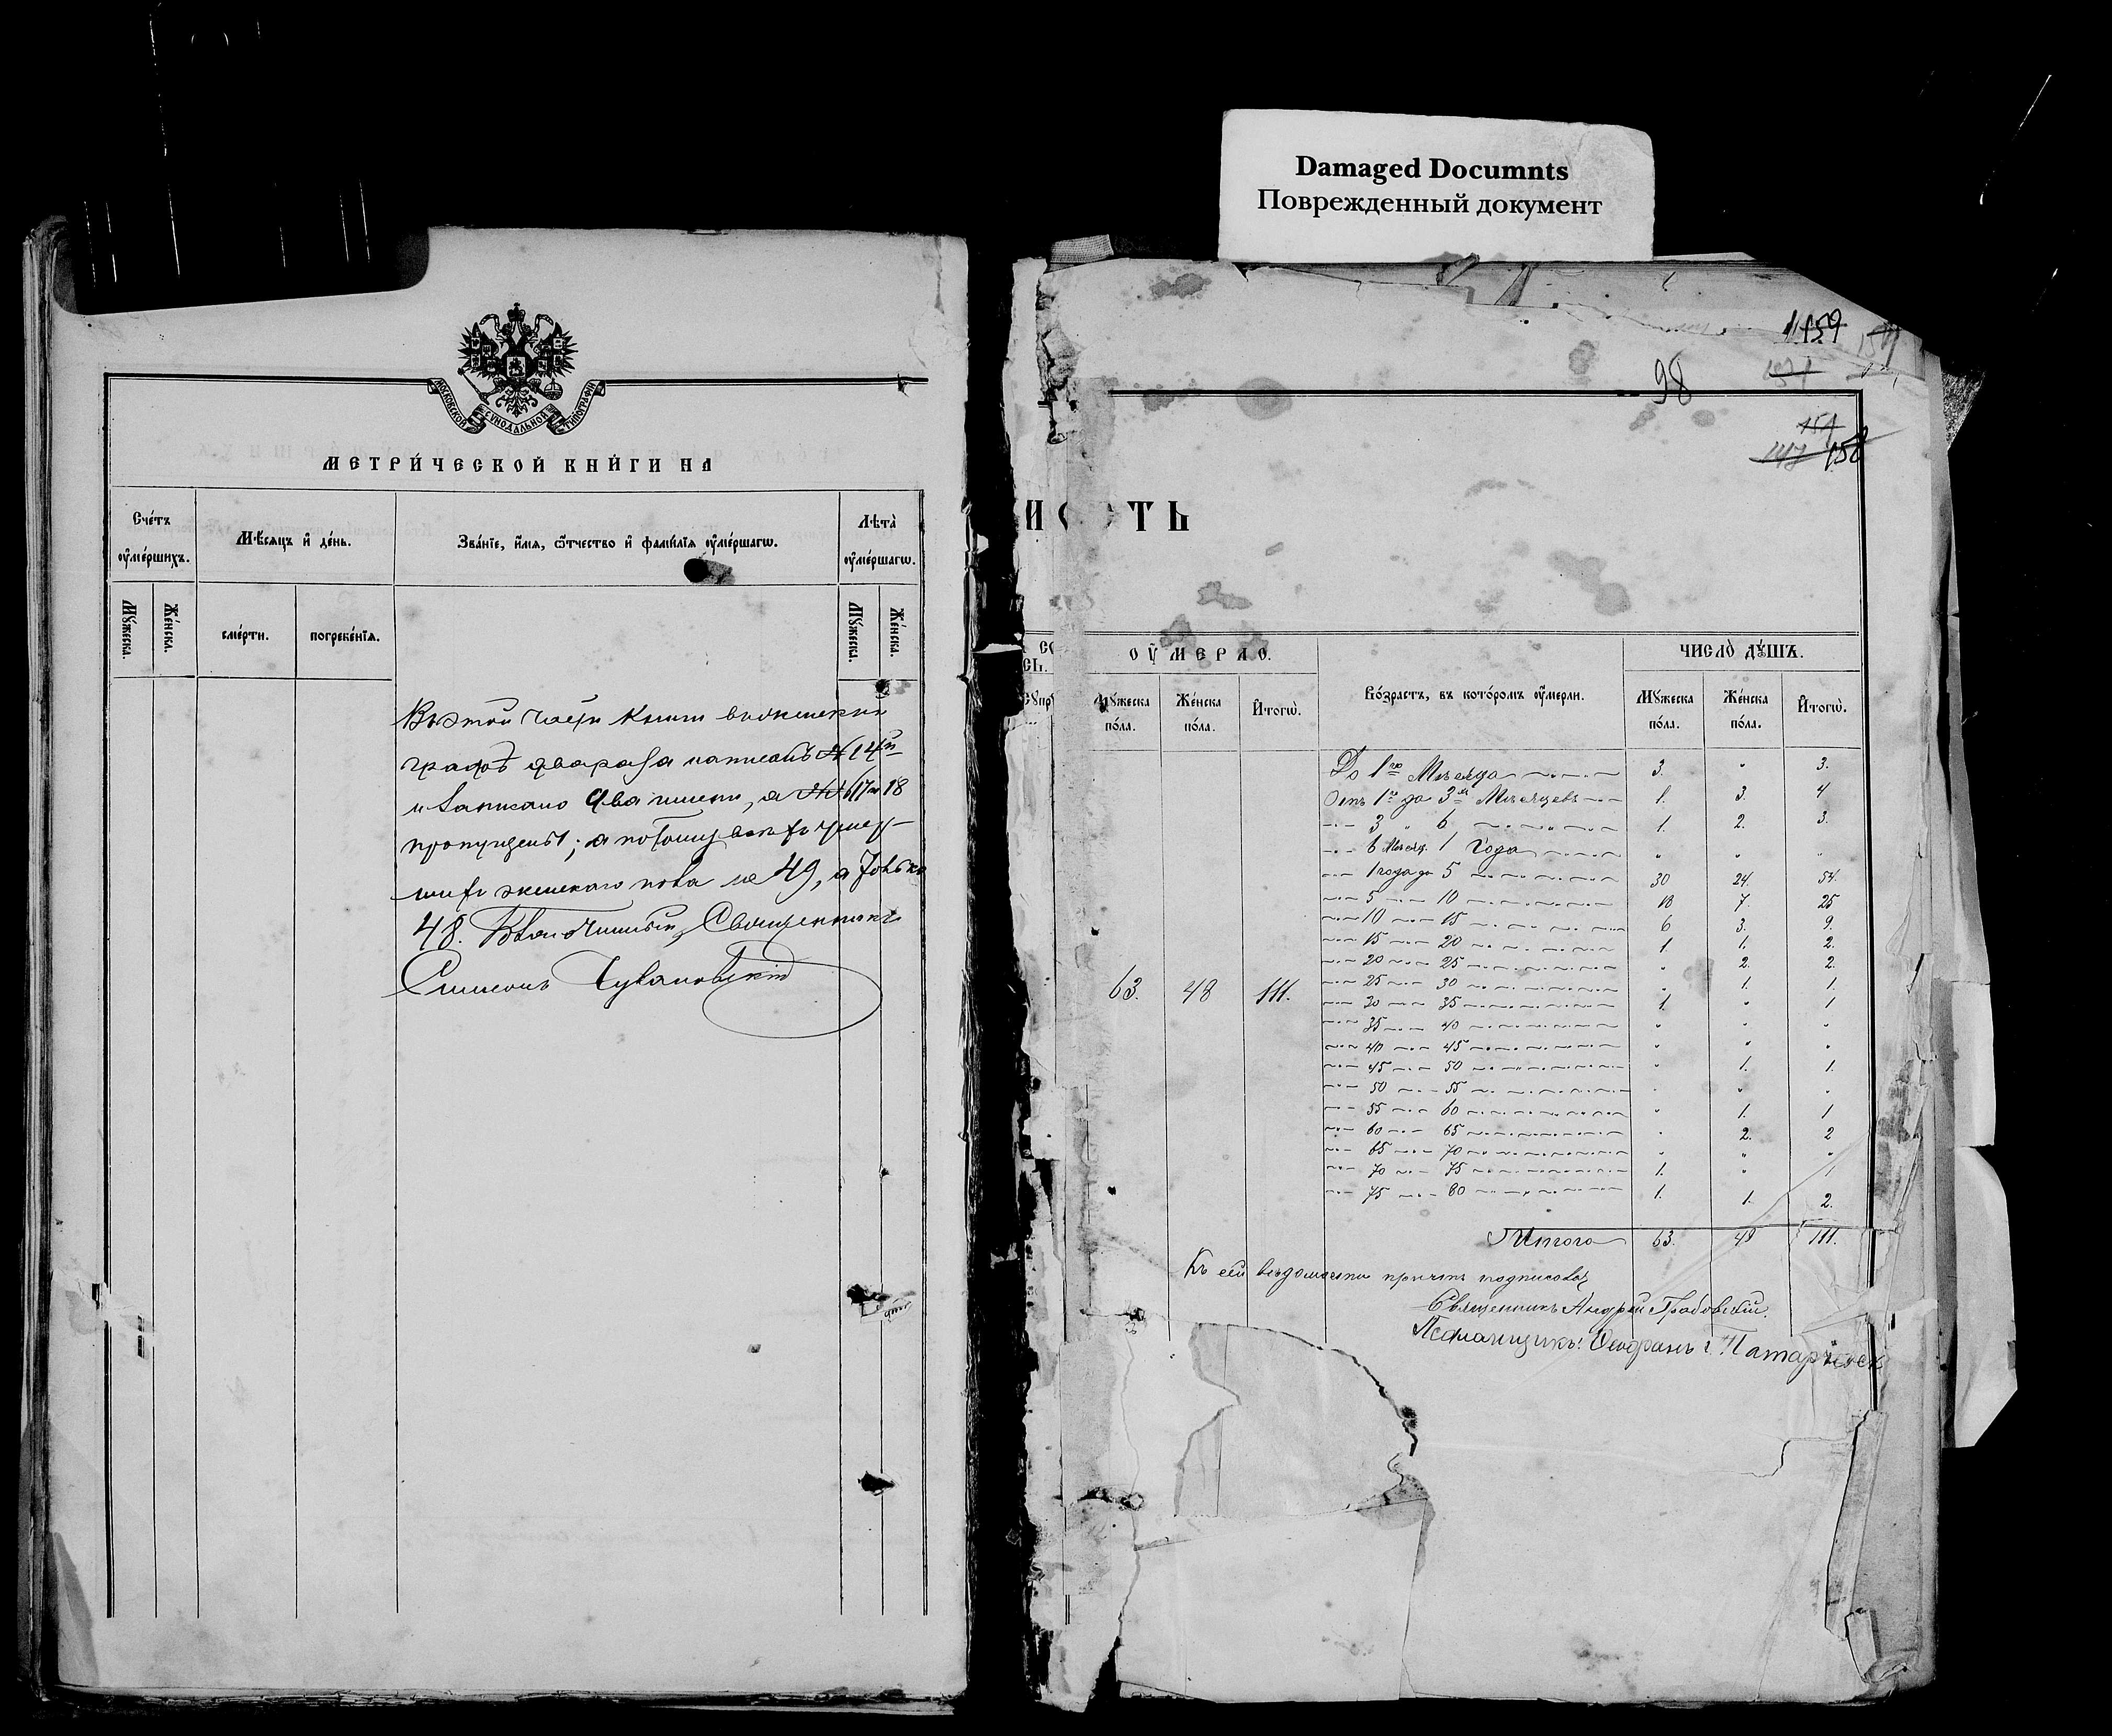 Damaged Documnts
Поврежденный документ
МОСКОВСКОЙ СѴНОДАЛЬНОЙ ТИПОГРАФІИ
МЕТРИ́ЧЕСКОЙ КНИ́ГИ НА
Сче́тъ ᲂу҆ме́ршихъ.
Мѣ́сяцъ и҆ де́нь.
Зва́нїе, и҆́мя, ѻ҆́тчество и҆ фами́лїя ᲂу҆ме́ршагѡ.
Лѣта̀ ᲂу҆ме́ршагѡ.
Мꙋ́жеска.
Же́нска.
сме́рти.
погребе́нїѧ.
Мꙋ́жеска.
Же́нска.
Въ этой части книги въ женской
графѣ два раза написанъ № 14й
и записано два имени, а №№ 17 и 18
пропущены; а потому всѣхъ умер-
шихъ женскаго пола не 49, а только
48. Благочинный, Священникъ
Симеонъ
98
1159
158
ТЬ
ОУ҆МЕРЛО.
Мꙋ́жеска по́ла.
Же́нска по́ла.
И҆тогѡ̀.
Во́зрастъ, въ кото́ромъ ᲂу҆́мерли.
ЧИСЛО̀ ДꙊ́ШЪ.
Мꙋ́жеска по́ла.
Же́нска по́ла.
И҆тогѡ̀.
До 1го Мѣсяца 3. " 3.
Отъ 1го до 3хъ Мѣсяцевъ 1. 3. 4
3 " 6 1. 2. 3.
6 Мѣсяц. 1 Года " " "
1 года до 5 30 24. 54.
5 10 18 7. 25
10 15 6 3. 9.
15 20 1 1. 2.
20 25 " 2. 2.
63. 48 111.
25 30 " 1. 1.
30 35 1. " 1
35 40 " " "
40 45 " " "
45 50 " 1. 1.
50 55 " " "
55 60 " 1. 1
60 65 " 2. 2
65 70 " " "
70 75 1. " 1
75 80 1. 1. 2.
Итого 63. 48 111.
Къ сей вѣдомости причтъ подписовал
Священникъ Андрей Грабовскій.
Псаломщикъ: